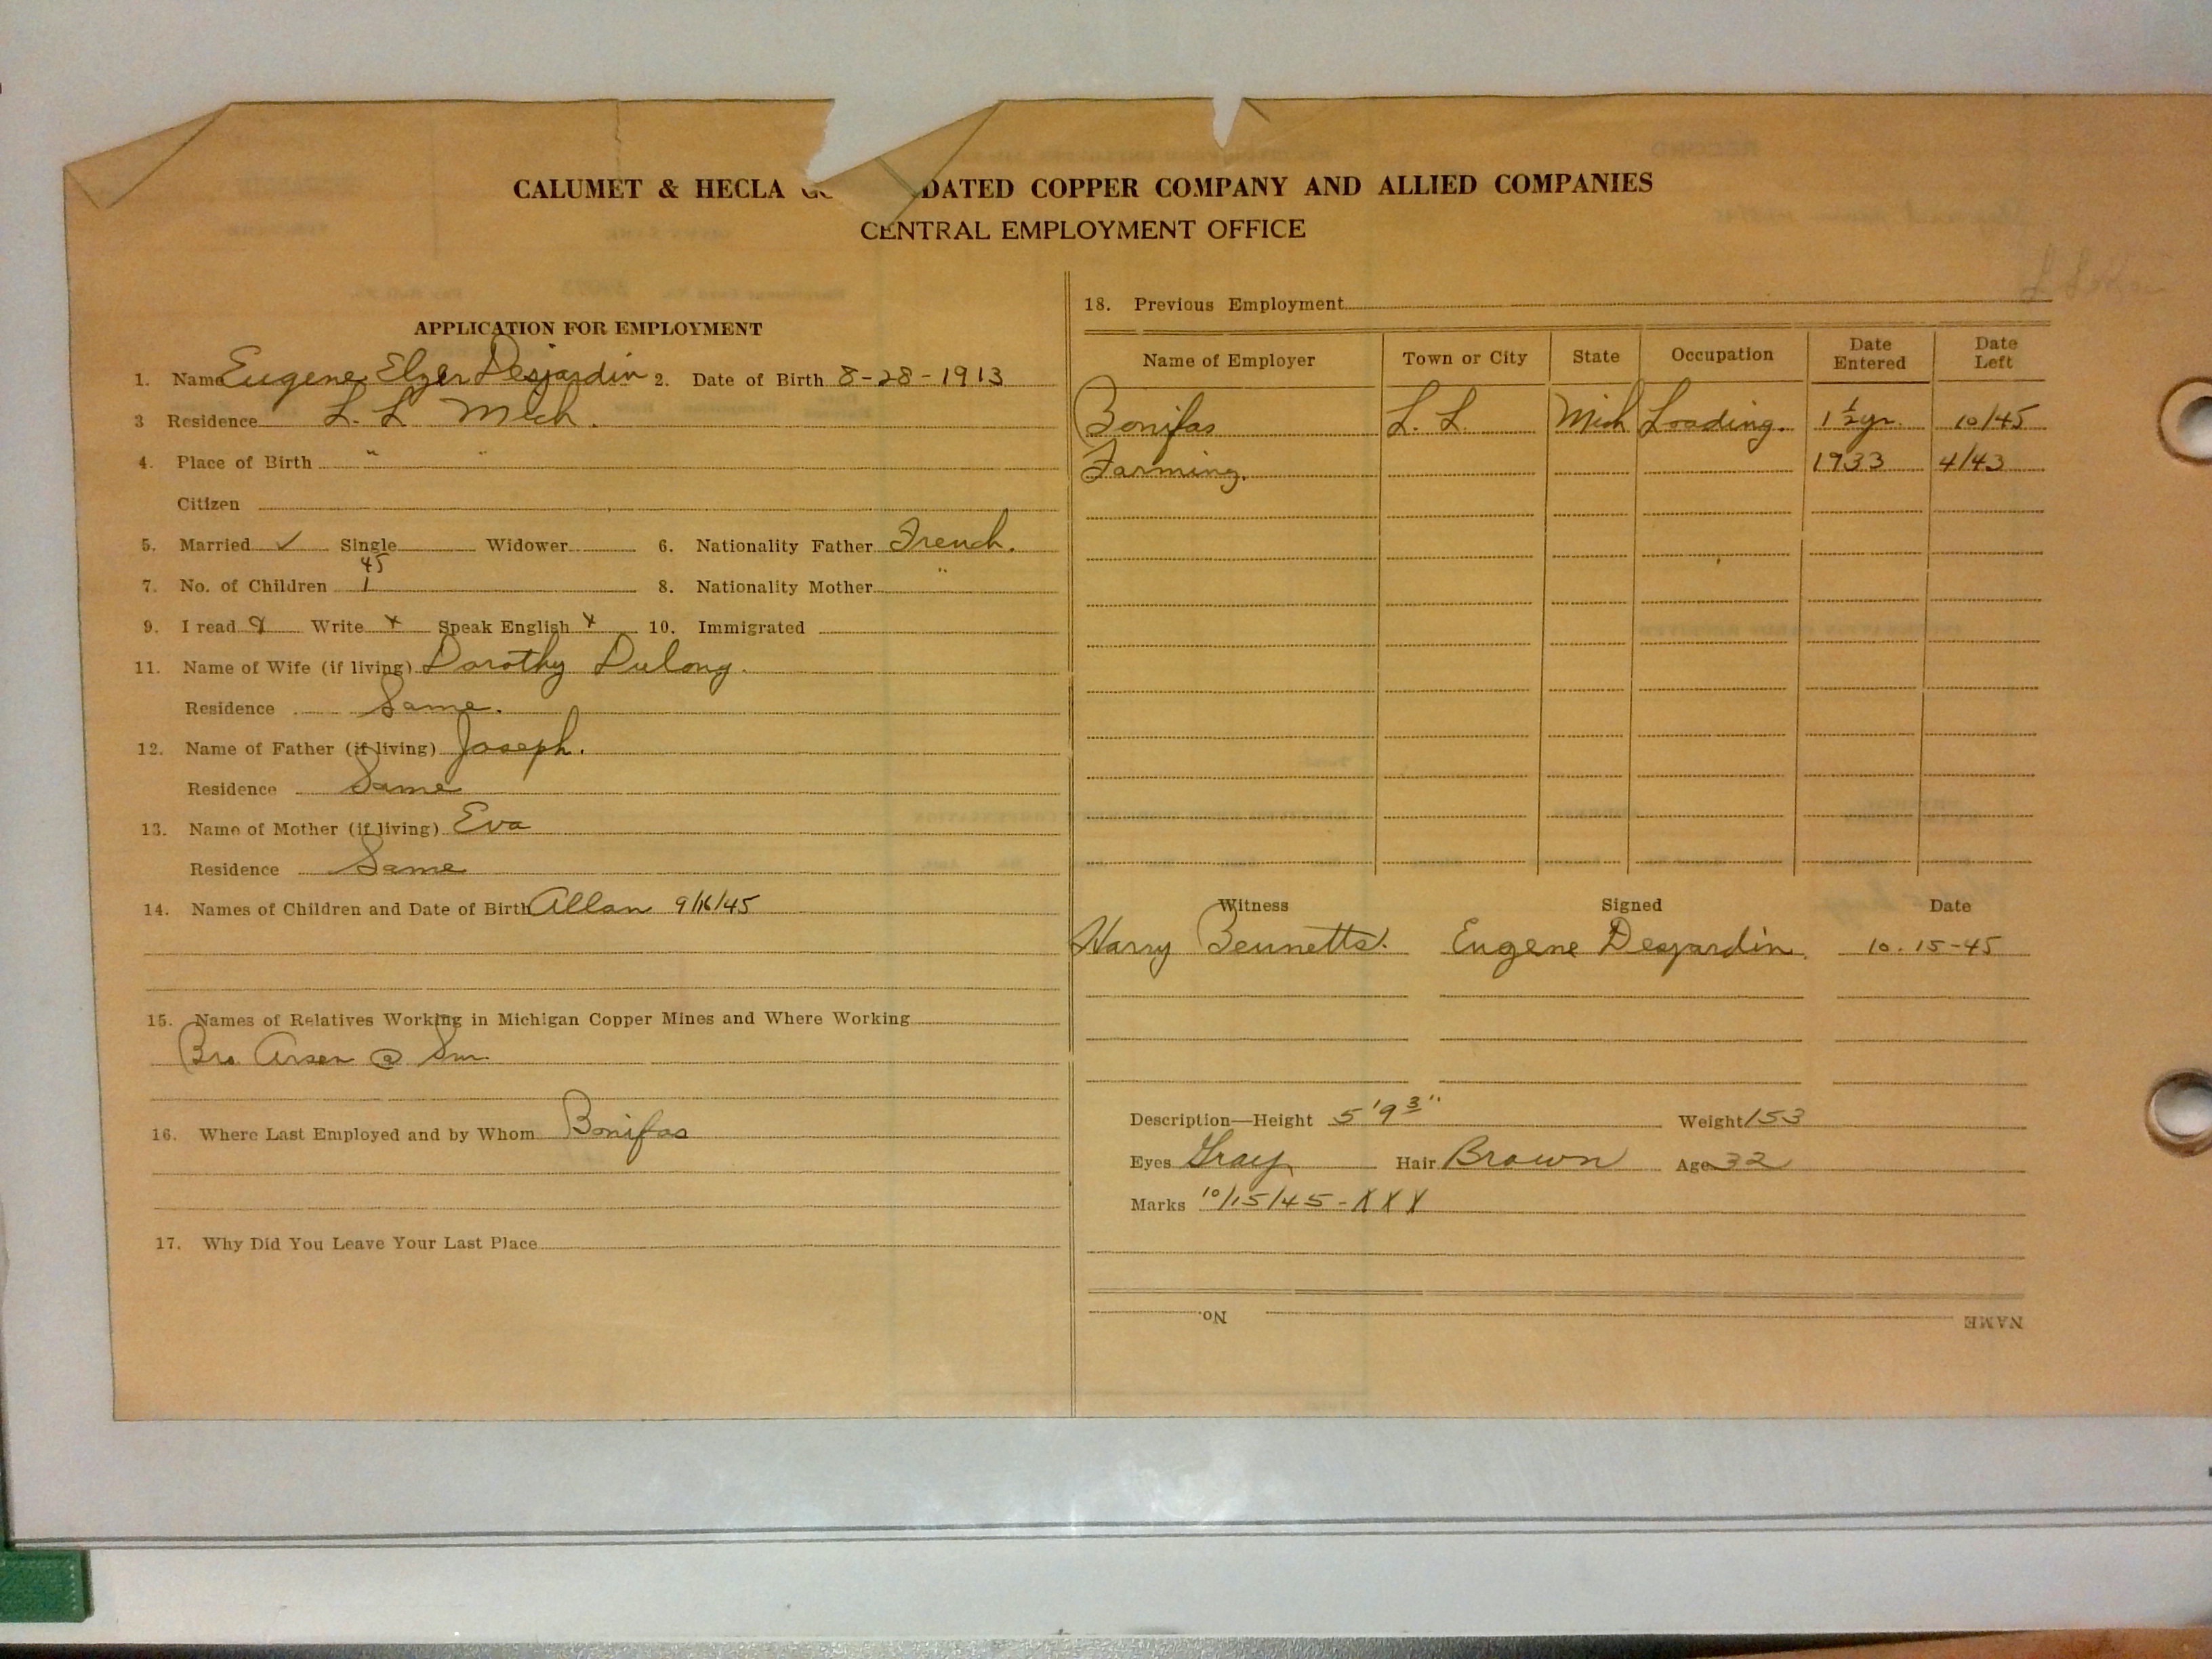 CALUMET & HECLA DATED COPPER COMPANY AND ALLIED COMPANIES
CENTRAL EMPLOYMENT OFFICE
APPLICATION FOR EMPLOYMENT
1. Name Eugene Elzer Desjardin 2. Date of Birth 8-28-1913
3 Residence L. L Mich.
4. Place of Birth " "
Citizen
5. Married ✓ Single Widower 6. Nationality Father French.
45
7. No. of Children 1 8. Nationality Mother "
9. I read Write x Speak English x 10. Immigrated
11. Name of Wife (if living) Dorothy Dulong.
Residence Same.
12. Name of Father (if living) Joseph.
Residence Same
13. Name of Mother (if living) Eva
Residence Same
14. Names of Children and Date of Birth Allan 9/16/45
15. Names of Relatives Working in Michigan Copper Mines and Where Working
Bro. Arsen @ Sm.
16. Where Last Employed and by Whom Bonifas
17. Why Did You Leave Your Last Place
18. Previous Employment
Name of Employer Town or City State Occupation Date Entered Date Left
Bonifas L. L. Mich Loading. 1 1/2 yr. 10/45
Farming. 1933 4/43
Witness Signed Date
Harry Bennetts. Eugene Desjardin. 10-15-45
Description—Height 5'9 3" Weight 153
Eyes Gray Hair Brown Age 32
Marks 10/15/45-XXX
NAME No.